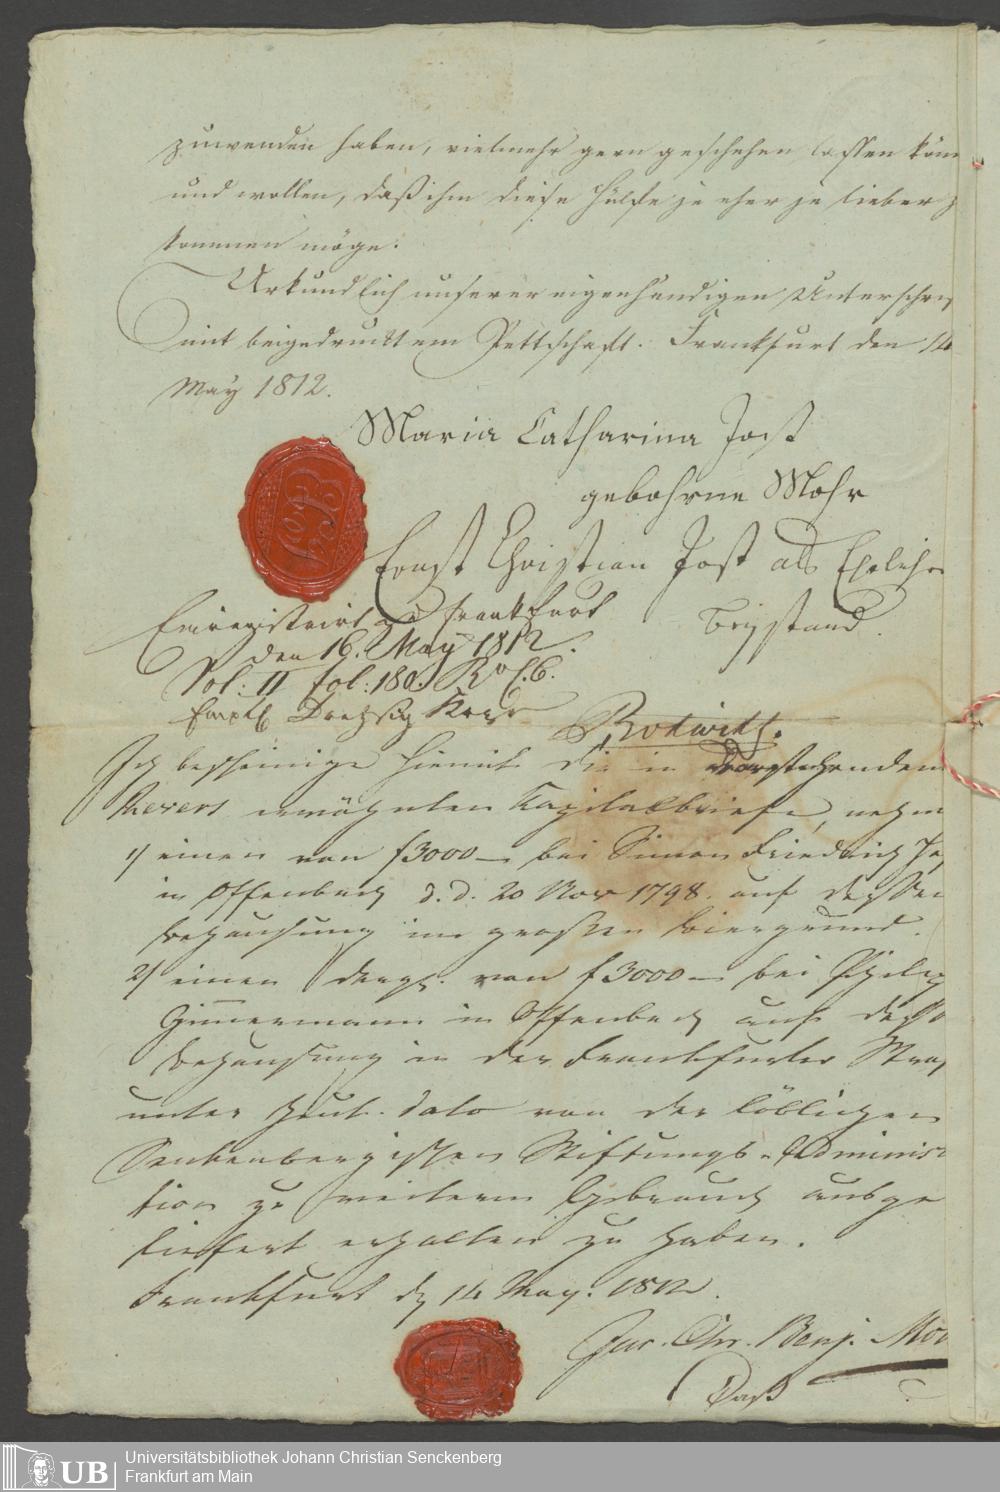 zuwenden haben, vielmehr gern geschehen lassen könn
und wollen, daß ihm diese Hülfe je eher je lieber z
kommen möge.
Urkundlich unserer eigenhändigen Unterschrif
mit beigedrucktem Pettschaft. Frankfurt den 14
May 1812.
Maria Catharina Jost
gebohrne Mohr
Ernst Christian Jost als Ehelicher
Beystand.
Einregistrirt zu Frankfurt
den 16. May 1812.
Vol: II fol: 180. R
Empf. Dreyßig Kreuz
Ich bescheinige hiemit die in vorstehendem
Revers erwähnten Kapitalbriefe, nehm
1) einen von f 3000 – bei Simon Friedrich
in Offenbach d. d. 20 Nov 1798. auf dessen
Behausung im großen Biergrund.
2) einen dergl. von f 3000 – bei Philip
Zimmermann in Offenbach auf desse
Behausung in der Frankfurter Stras
unter heut. dato von der löblichen
Senkenbergischen Stiftungs-Administra
tion zu weiterm Gebrauch ausge
liefert erhalten zu haben.
Frankfurt d 14 May. 1812.
Chr. Benj. Mo
Daß
Universitätsbibliothek Johann Christian Senckenberg
Frankfurt am Main
UB